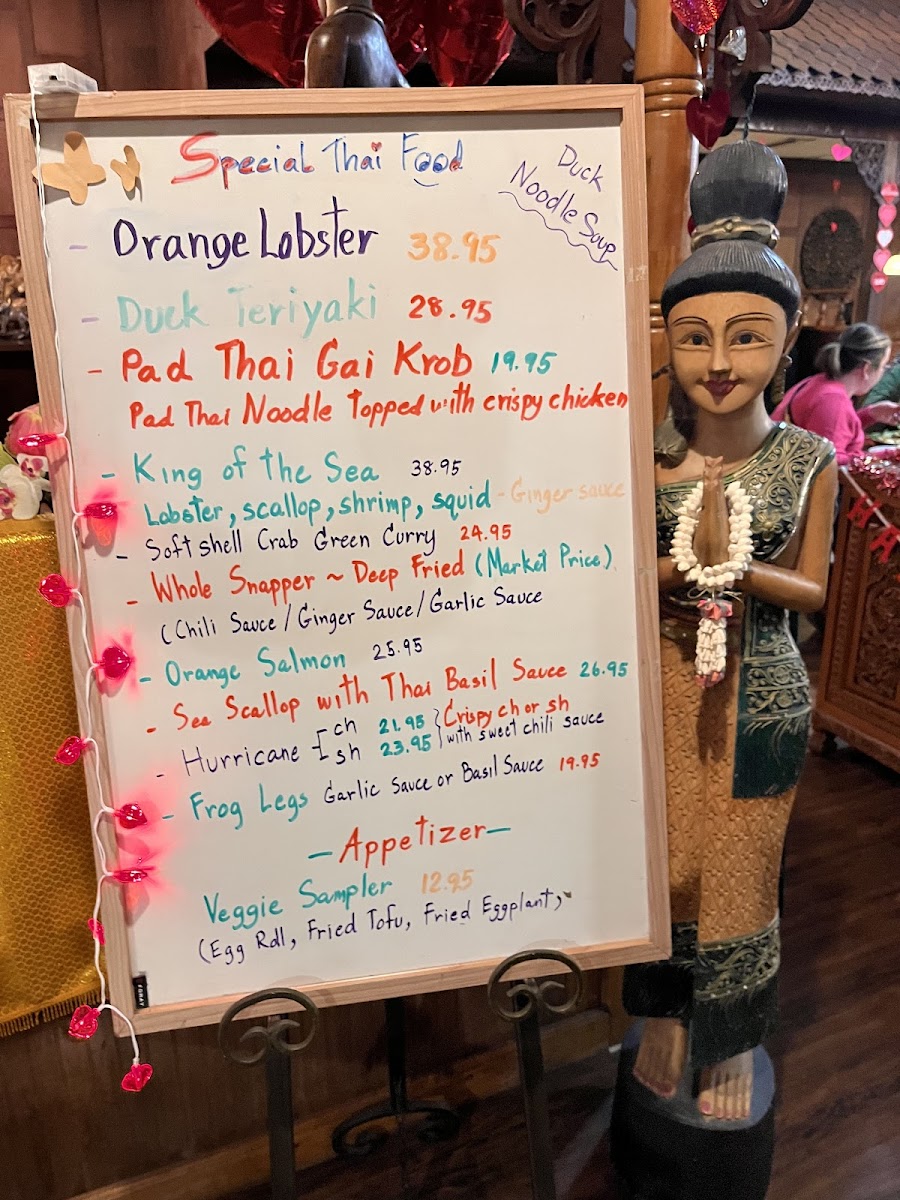 Special Thai Food
Duck
Noodle Soup
- Orange Lobster 38.95
- Duck Teriyaki 28.95
- Pad Thai Gai Krob 19.95
Pad Thai Noodle Topped with crispy chicken
- King of the Sea 38.95
Lobster, scallop, shrimp, squid - Ginger sauce
- Soft shell Crab Green Curry 24.95
- Whole Snapper ~ Deep Fried (Market Price)
(Chili Sauce / Ginger Sauce / Garlic Sauce
- Orange Salmon 25.95
- Sea Scallop with Thai Basil Sauce 26.95
- Hurricane - ch 21.95 } Crispy ch or sh
- sh 23.95 } with sweet chili sauce
- Frog Legs Garlic Sauce or Basil Sauce 19.95
- Appetizer -
Veggie Sampler 12.95
(Egg Roll, Fried Tofu, Fried Eggplant,